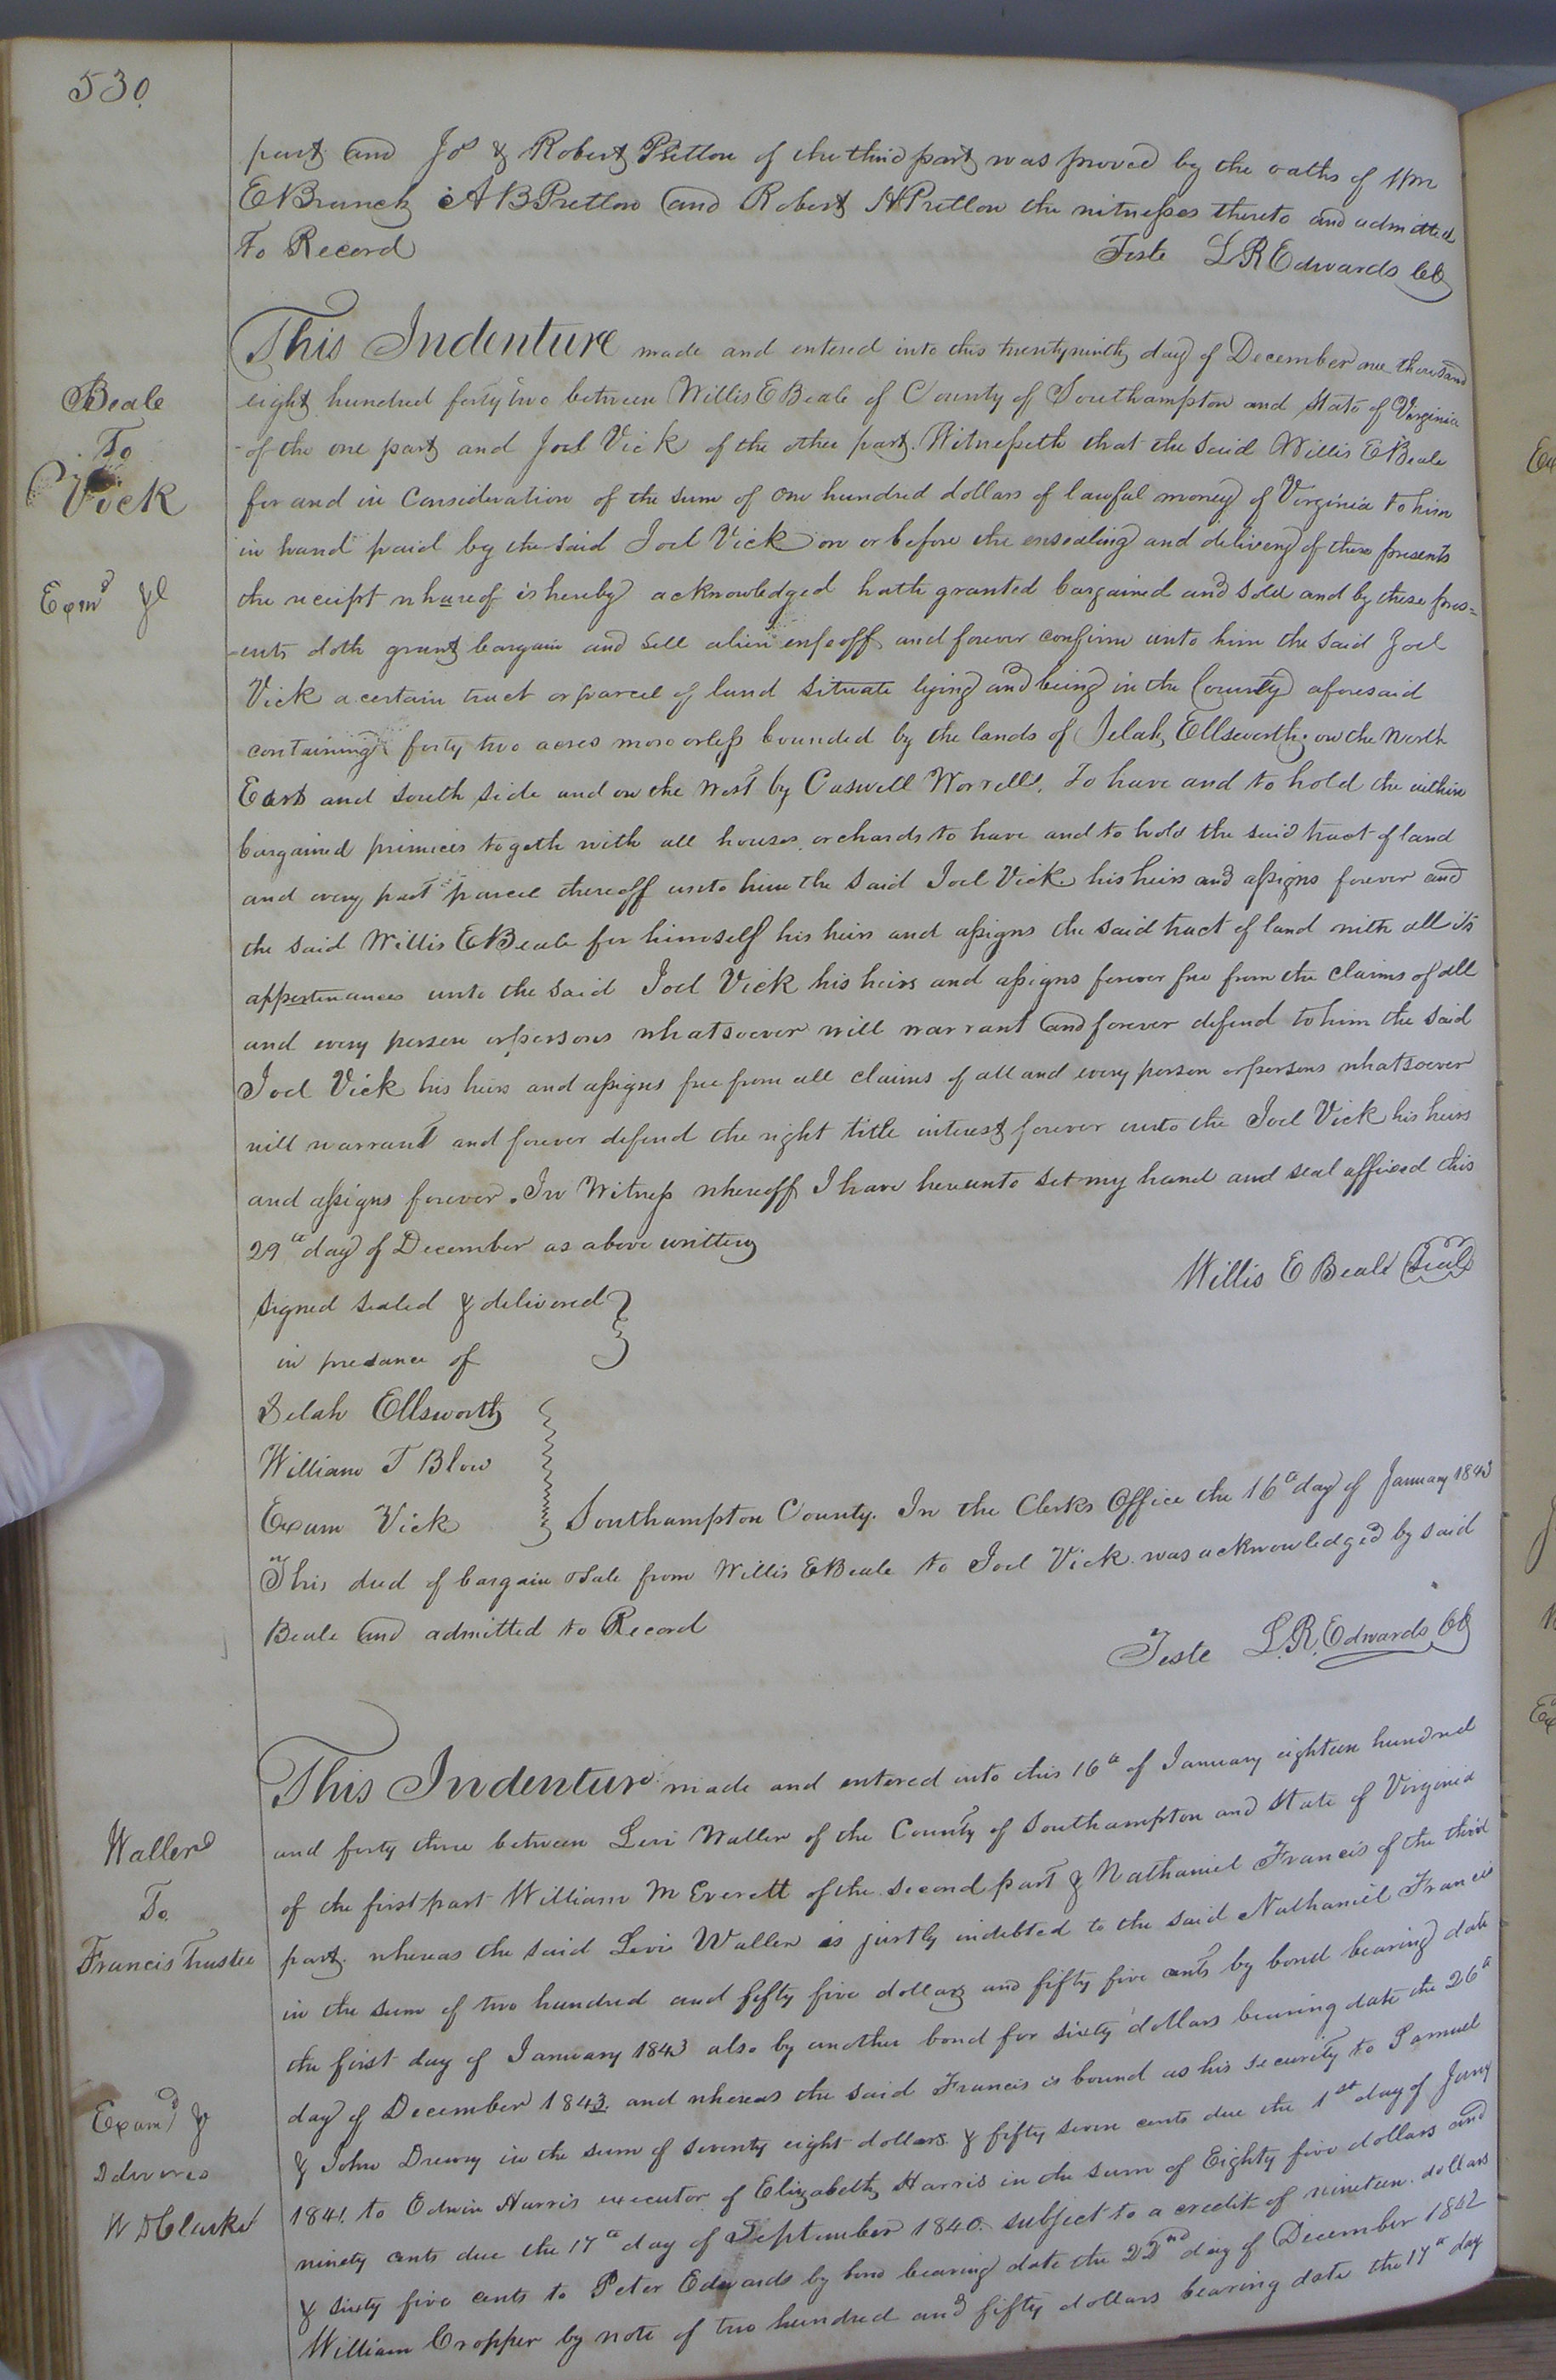 530.
part and Jos & Robert Pretlow of the third part was proved by the oaths of Wm
E Branch A B Pretlow and Robert H Pretlow the witnesses thereto and admitted
To Record
Teste L R Edwards Clk
This Indenture made and entered into this twentyninth day of December one thousand
eight hundred forty two between Willis E Beale of County of Southampton and State of Virginia
of the one part and Joel Vick of the other part. Witnesseth that the said Willis E Beale
for and in Consideration of the sum of one hundred dollars of lawful money of Virginia to him
in hand paid by the said Joel Vick on or before the ensealing and delivery of these presents
the receipt whareof is hereby acknowledged hath granted bargained and sold and by these pres=
-ents doth grant bargain and sell alien enfeoff and forever confirm unto him the said Joel
Vick a certain tract or parcel of land situate lying and being in the County aforesaid
containing forty two acres more or less bounded by the lands of Selah Ellsworth on the North
East and South side and on the West by Caswell Worrell. To have and to hold the within
bargained primices togeth with all houses orchards to have and to hold the said tract of land
and every part parcel thereoff unto him the said Joel Vick his heirs and assigns forever and
the said Willis E Beale for himself his heirs and assigns the said tract of land with all its
appertenances unto the said Joel Vick his heirs and assigns forever free from the claims of all
and every person or persons whatsoever will warrant and forever defend to him the said
Joel Vick his heirs and assigns free from all claims of all and every person or persons whatsoever
will warrant and forever defend the right title interest forever unto the Joel Vick his heirs
and assigns forever. In Witness whereoff I have hereunto set my hand and seal affixed this
29th day of December as above written
Willis E Beale Seal
Signed sealed & delivered
in presance of
Selah Ellsworth
William T Blow
Exum Vick
Southampton County. In the Clerks Office the 16th day of January 1843
This deed of bargain & sale from Willis E Beale to Joel Vick was acknowledged by said
Beale and admitted to Record
Teste L. R. Edwards Clk
This Indenture made and entered into this 16th of January eighteen hundred
and forty three between Levi Waller of the County of Southampton and State of Virginia
of the first part William M Everett of the second part & Nathaniel Francis of the third
part. whereas the said Levi Waller is justly indebted to the said Nathaniel Francis
in the sum of two hundred and fifty five dollars and fifty five cents by bond bearing date
the first day of January 1843 also by another bond for sixty dollars bearing date the 26th
day of December 1843. and whereas the said Francis is bound as his security to Samuel
& John Drewry in the sum of seventy eight dollars & fifty seven cents due the 1st day of Jany
1841. to Edwin Harris executor of Elizabeth Harris in the sum of Eighty five dollars and
ninety cents due the 17th day of September 1840. subject to a credit of nineteen dollars
& sixty five cents to Peter Edwards by bond bearing date the 22nd day of December 1842
William Cropper by note of two hundred and fifty dollars bearing date the 17th day
Beale
To
Vick
Exmd
Waller
To
Francis Trustee
Examd
W D Clarke